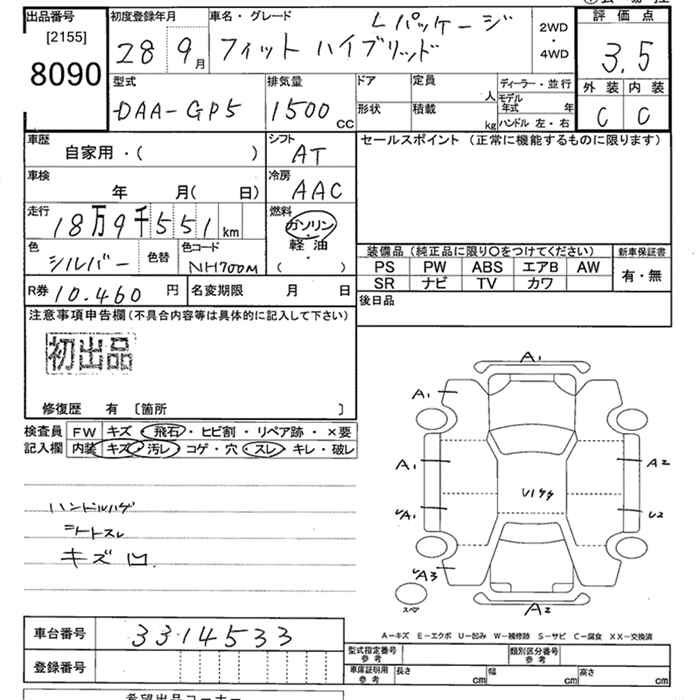 出品番号 [2155] 8090
初度登録年月 28 9月
車名・グレード フィットハイブリッド Lパッケージ
2WD・4WD
評価点 3.5
外装 内装
C C
型式 DAA-GP5
排気量 1500 cc
ドア 定員 人
形状 積載 kg
ディーラー・並行
モデル年式 年
ハンドル 左・右
車歴 自家用・( )
シフト AT
セールスポイント (正常に機能するものに限ります)
車検 年 月( 日)
冷房 AAC
走行 18万9千551km
燃料 ガソリン・軽油・( )
色 シルバー 色替 色コード NH700M
装備品(純正品に限り○をつけてください) 新車保証書
PS PW ABS エアB AW 有・無
SR ナビ TV カワ
R券 10.460円 名変期限 月 日
後日品
注意事項申告欄(不具合内容等は具体的に記入して下さい)
初出品
修復歴 有 〔箇所 〕
検査員 FW キズ・飛石・ヒビ割・リペア跡・×要
記入欄 内装 キズ・汚レ・コゲ・穴・スレ・キレ・破レ
ハンドルハゲ
シートスレ
キズ凹
A1
A1
A1 A2
U1キキ
UA1 U2
UA3
スペア
A2
A-キズ E-エクボ U-凹み W-補修跡 S-サビ C-腐食 XX-交換済
車台番号 3314533
登録番号
型式指定番号 参考 類別区分番号 参考
車庫証明用 参考 長さ cm 幅 cm 高さ cm
希望出品コーナー